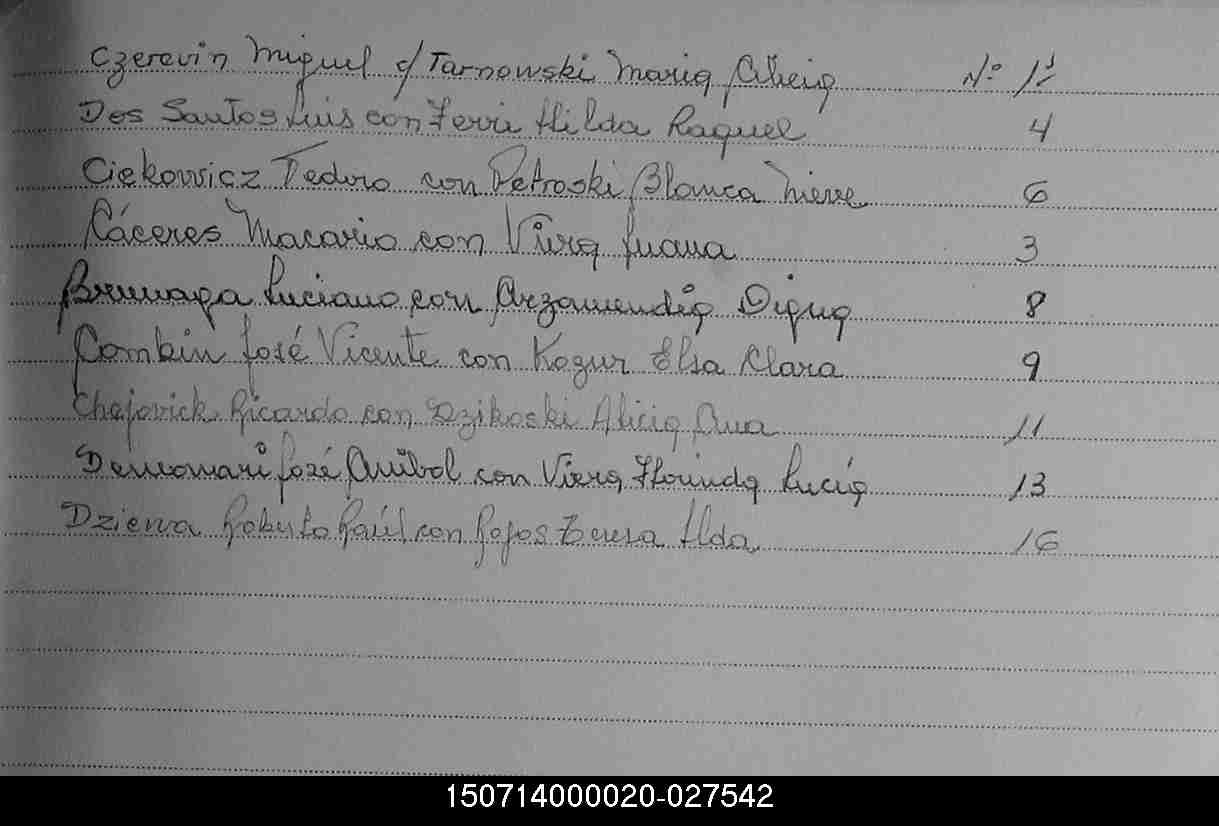 Czerevin Miguel c/ Tarnowski Maria Alicia Nº 1
Dos Santos Luis con Ferri Hilda Raquel 4
Ciekowicz Pedro con Petroski Blanca Nieve 6
Cáceres Macario con Viera Juana 3
Brunnaga Luciano con Arzamendia Digna 8
Combin José Vicente con Kozur Elsa Clara 9
Chajovick Ricardo con Dzikoski Alicia Ana 11
José Anibal con Viera Florinda Lucía 13
Dziewa Roberto Raúl con Rojos Teresa Ilda 16
150714000020-027542